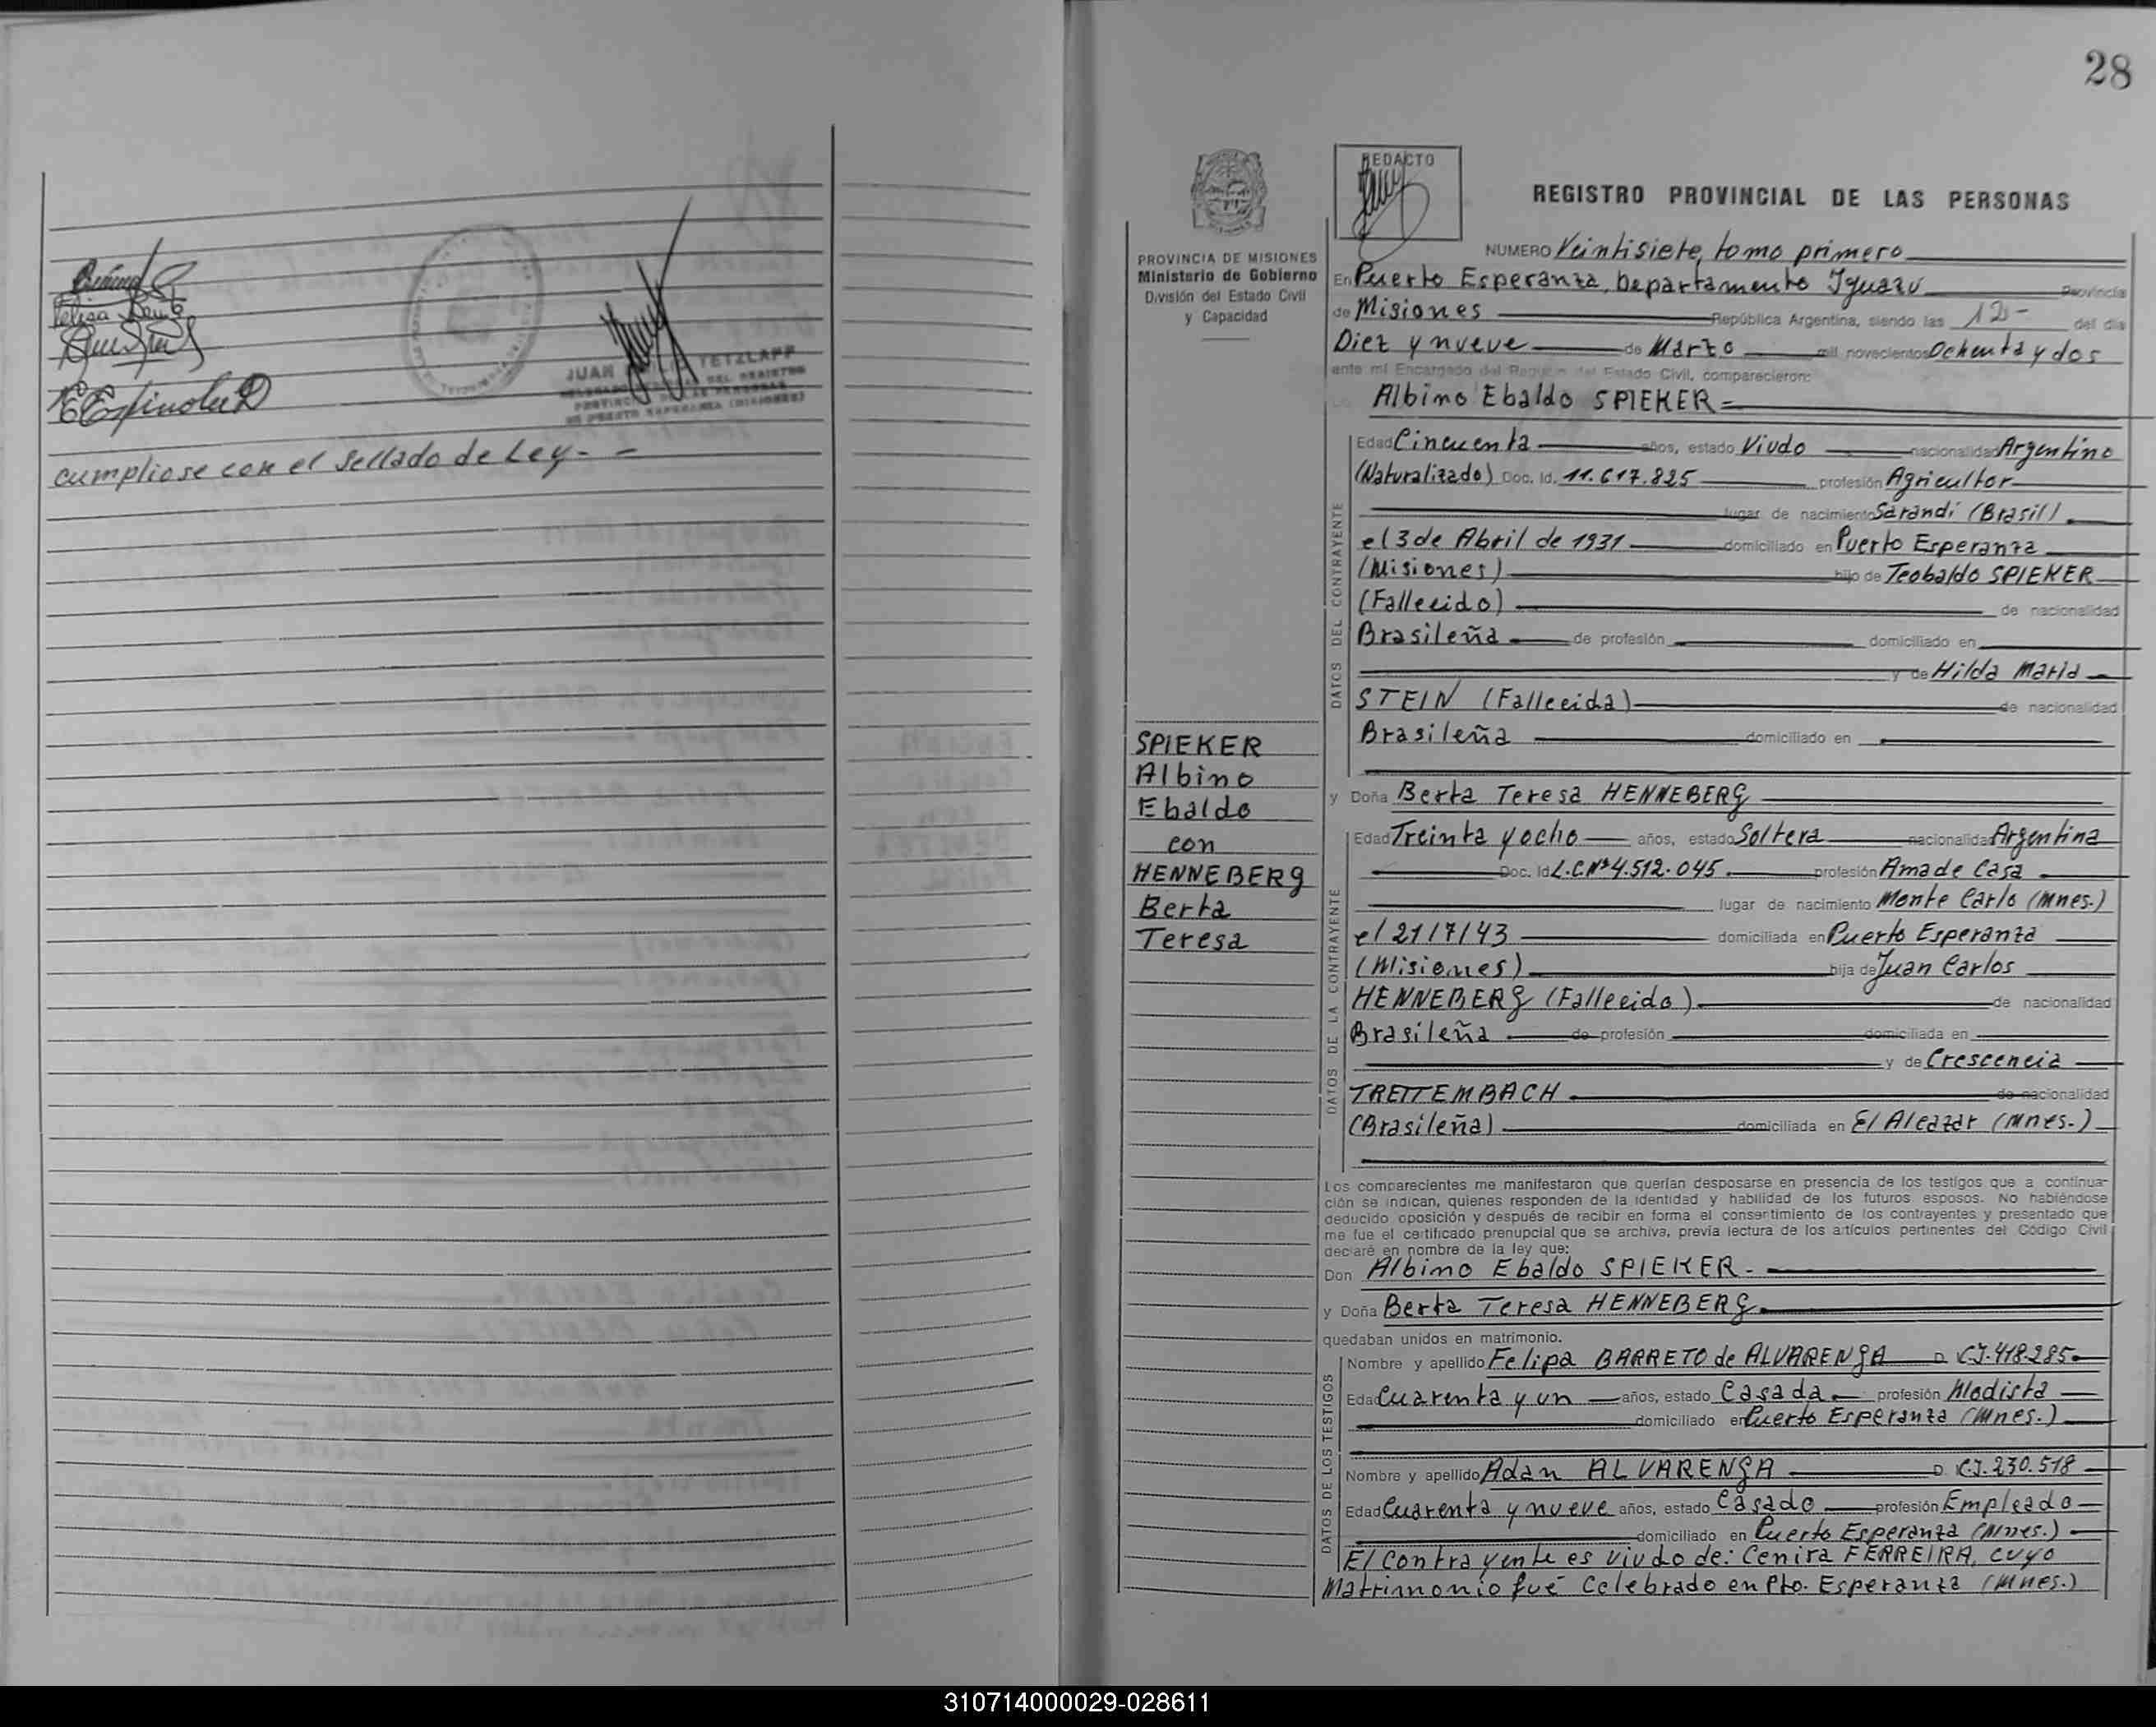 Felisa Benite
JUAN TETZLAFF
DELEGADO DEL REGISTRO
PROVINCIAL DE LAS PERSONAS
DE PUERTO ESPERANZA (MISIONES)
E Espinola
cumpliose con el sellado de Ley. -
28
REDACTO
REGISTRO PROVINCIAL DE LAS PERSONAS
PROVINCIA DE MISIONES
Ministerio de Gobierno
División del Estado Civil
y Capacidad
NUMERO Veintisiete, tomo primero
En Puerto Esperanza, Departamento Iguazú Provincia
de Misiones República Argentina, siendo las 12- del día
Diez y nueve de Marzo mil novecientos Ochenta y dos
ante mí Encargado del Registro del Estado Civil, comparecieron:
Albino Ebaldo SPIEKER=
DATOS DEL CONTRAYENTE
Edad Cincuenta años, estado Viudo nacionalidad Argentino
(Naturalizado) Doc. Id. 11.617.825 profesión Agricultor
lugar de nacimiento Sarandí (Brasil).
el 3 de Abril de 1931 domiciliado en Puerto Esperanza
(Misiones) hijo de Teobaldo SPIEKER
(Fallecido) de nacionalidad
Brasileña de profesión domiciliado en
y de Hilda María
STEIN (Fallecida) de nacionalidad
Brasileña domiciliado en
SPIEKER
Albino
Ebaldo
con
HENNEBERG
Berta
Teresa
y Doña Berta Teresa HENNEBERG
DATOS DE LA CONTRAYENTE
Edad Treinta y ocho años, estado Soltera nacionalidad Argentina
Doc. Id L.C.Nº 4.512.045. profesión Ama de Casa
lugar de nacimiento Monte Carlo (Mnes.)
el 21/7/43 domiciliada en Puerto Esperanza
(Misiones) hija de Juan Carlos
HENNEBERG (Fallecido). de nacionalidad
Brasileña de profesión domiciliada en
y de Crescencia
TRETTEMBACH de nacionalidad
(Brasileña) domiciliada en El Alcazar (Mnes.)
Los comparecientes me manifestaron que querían desposarse en presencia de los testigos que a continua-
ción se indican, quienes responden de la identidad y habilidad de los futuros esposos. No habiéndose
deducido oposición y después de recibir en forma el consentimiento de los contrayentes y presentado que
me fue el certificado prenupcial que se archiva, previa lectura de los artículos pertinentes del Código Civil
declaré en nombre de la ley que:
Don Albino Ebaldo SPIEKER.-
y Doña Berta Teresa HENNEBERG.
quedaban unidos en matrimonio.
DATOS DE LOS TESTIGOS
Nombre y apellido Felipa BARRETO de ALVARENGA D. C.I. 418.285
Edad Cuarenta y un años, estado Casada. profesión Modista
domiciliado en Puerto Esperanza (Mnes.)
Nombre y apellido Adan ALVARENGA D. C.I. 230.518
Edad Cuarenta y nueve años, estado Casado profesión Empleado
domiciliado en Puerto Esperanza (Mnes.)
El Contrayente es viudo de: Cenira FERREIRA, cuyo
Matrimonio fué Celebrado en Pto. Esperanza (Mnes.)
310714000029-028611